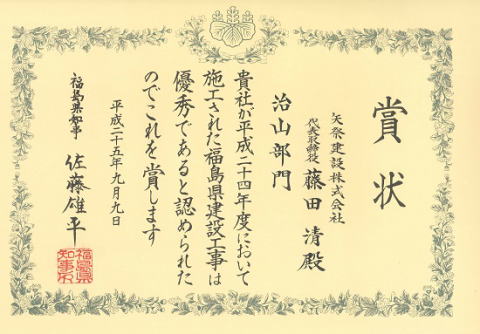 賞状
矢祭建設株式会社
代表取締役 藤田 清 殿
治山部門
貴社が平成二十四年度において
施工された福島県建設工事は
優秀であると認められた
のでこれを賞します
平成二十五年九月九日
福島県知事 佐藤雄平
福島県
知事印